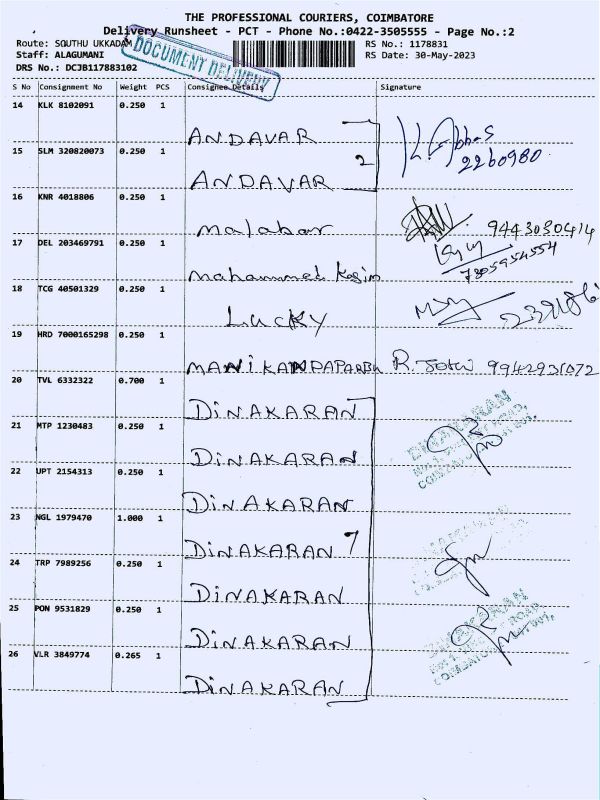 THE PROFESSIONAL COURIERS, COIMBATORE
Delivery Runsheet - PCT - Phone No.:0422-3505555 - Page No.:2
Route: SOUTHU UKKADAM
RS No.: 1178831
Staff: ALAGUMANI
RS Date: 30-May-2023
DRS No.: DCJB117883102
DOCUMENT DELIVERY
S No Consignment No Weight PCS Consignee Details Signature
14 KLK 8102091 0.250 1
ANDAVAR
15 SLM 320820073 0.250 1
2
2260980
ANDAVAR
16 KNR 4018806 0.250 1
Malabar 9443030414
17 DEL 203469791 0.250 1
7305954554
Mahammed Kasim
18 TCG 40501329 0.250 1
Lucky
19 HRD 7000165298 0.250 1
MANIKANDAPARBU R. 9942931072
20 TVL 6332322 0.700 1
DINAKARAN
21 MTP 1230483 0.250 1
DINAKARAN
22 UPT 2154313 0.250 1
DINAKARAN
23 NGL 1979470 1.000 1
DINAKARAN 7
24 TRP 7989256 0.250 1
DINAKARAN
25 PON 9531829 0.250 1
DINAKARAN
26 VLR 3849774 0.265 1
DINAKARAN